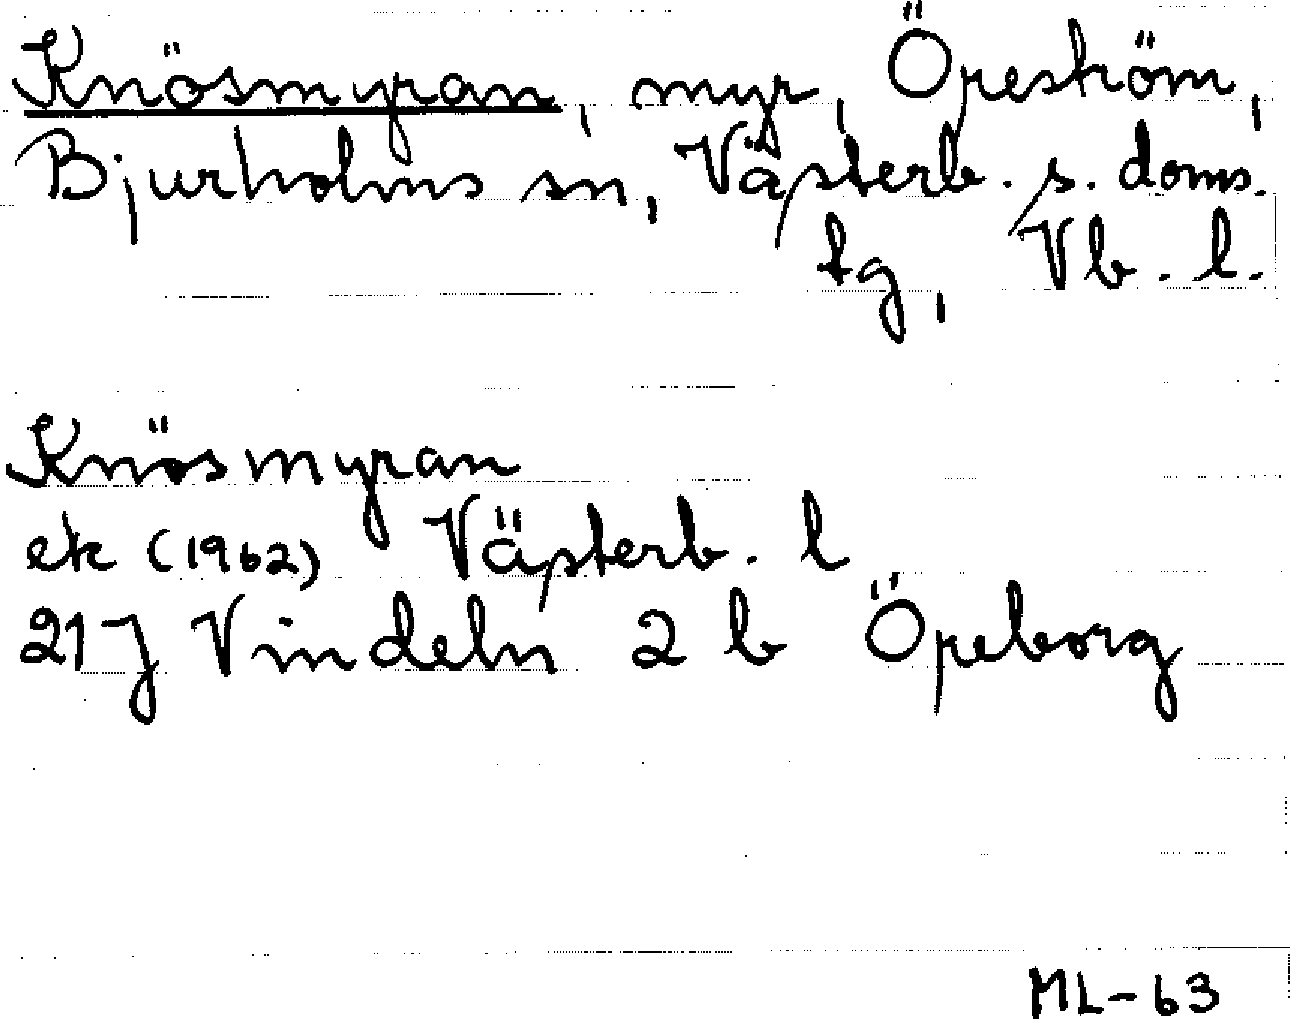 Knösmyran, myr, Öreström,
Bjurholms sn, Västerb. s. doms.
tg, Vb. l.
Knösmyran
ek (1962) Västerb. l
21J Vindeln 2 b Öreborg
ML-63